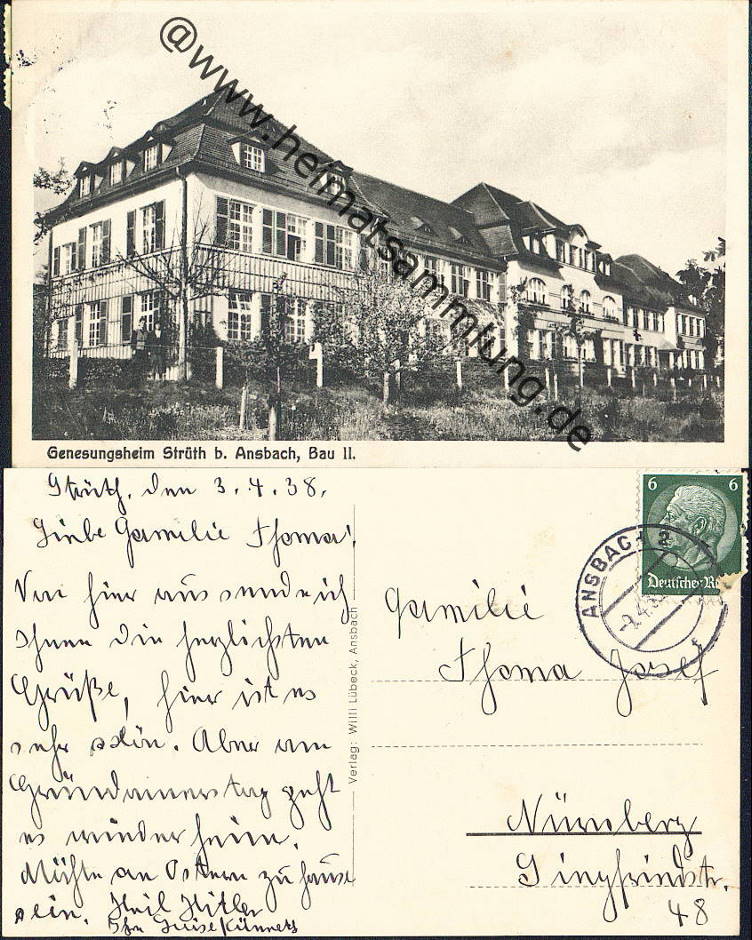 @www.heimatsammlung.de
Genesungsheim Strüth b. Ansbach, Bau II.
Strüth, den 3.4.38.
Liebe Familie Thoma!
Von hier aus sende ich
Ihnen die herzlichsten
Grüße, hier ist es
sehr schön. Aber am
Gründonnerstag geht
es wieder heim.
Möchte an Ostern zu hause
sein. Heil Hitler
Verlag: Willi Lübeck, Ansbach
6 6
Deutsches Re
ANSBACH 2
Familie
Thoma Josef
Nürnberg
Singfriedstr.
48